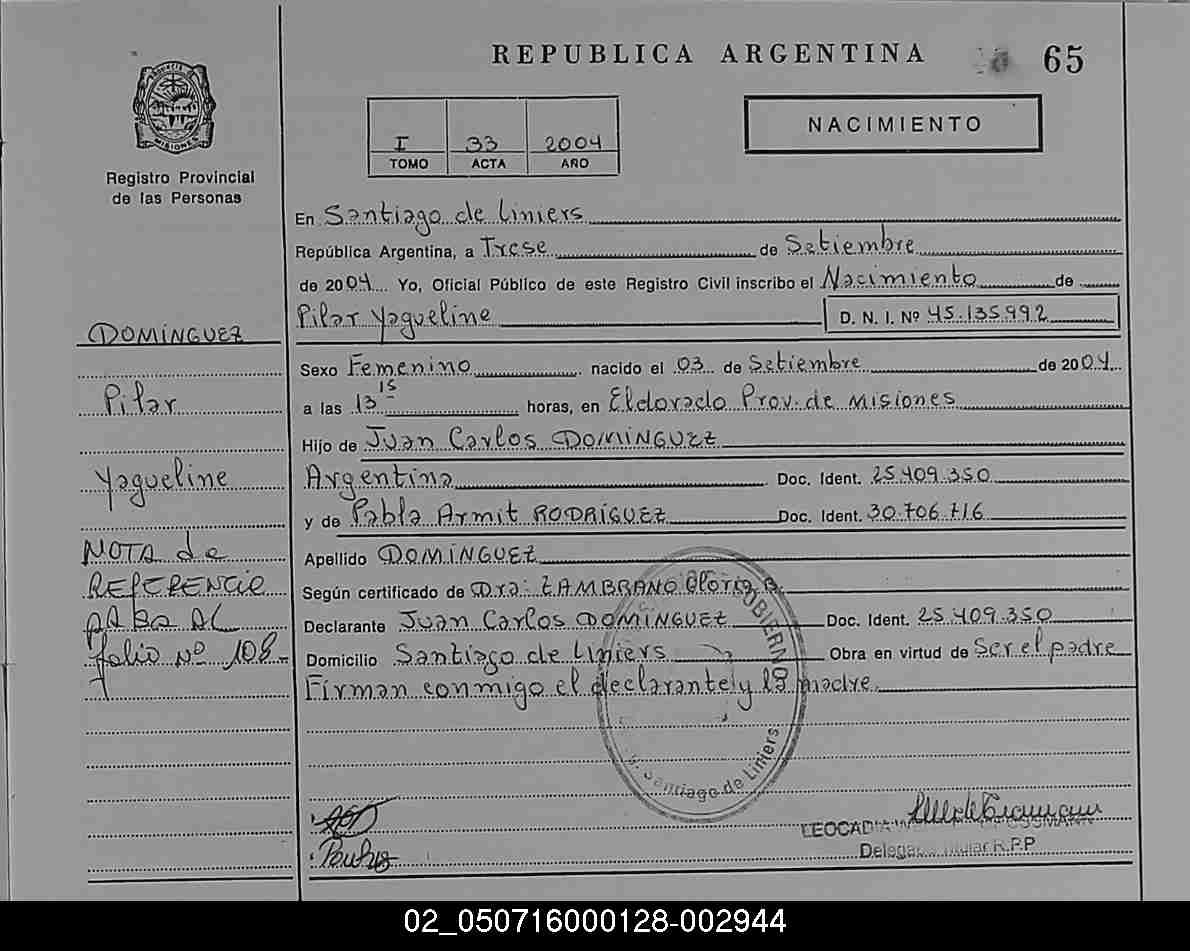 REPUBLICA ARGENTINA
65
MISIONES
Registro Provincial
de las Personas
I 33 2004
TOMO ACTA AÑO
NACIMIENTO
En Santiago de Liniers
República Argentina, a Trese de Setiembre
de 2004 Yo, Oficial Público de este Registro Civil inscribo el Nacimiento de
Pilar Yaqueline D. N. I. Nº 45.135.992
DOMÍNGUEZ
Pilar
Yaqueline
NOTA de
REFERENCIA
al
folio Nº 108-
Sexo Femenino nacido el 03 de Setiembre de 2004
a las 13 15 horas, en Eldorado Prov. de Misiones
Hijo de Juan Carlos DOMÍNGUEZ
Argentina Doc. Ident. 25.409.350
y de Pabla Armit RODRÍGUEZ Doc. Ident. 30.706.716
Apellido DOMÍNGUEZ
Según certificado de Dra: ZAMBRANO Gloria B.
Declarante Juan Carlos DOMÍNGUEZ Doc. Ident. 25.409.350
Domicilio Santiago de Liniers Obra en virtud de Ser el padre
Firman conmigo el declarante y la madre.
GOBIERNO
Santiago de Liniers
LEOCADIA
Delegada Titular R.P.P
02_050716000128-002944